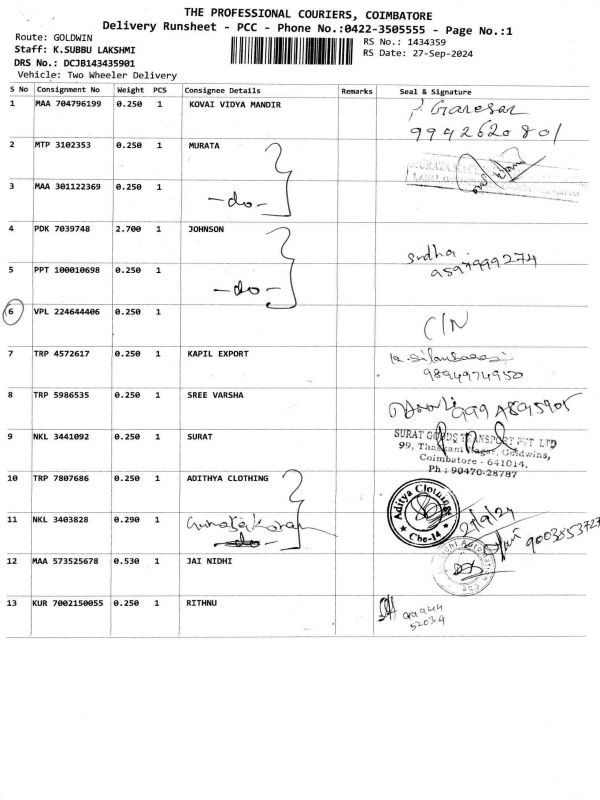 THE PROFESSIONAL COURIERS, COIMBATORE
Delivery Runsheet - PCC - Phone No.:0422-3505555 - Page No.:1
Route: GOLDWIN
RS No.: 1434359
Staff: K.SUBBU LAKSHMI
RS Date: 27-Sep-2024
DRS No.: DCJB143435901
Vehicle: Two Wheeler Delivery
S No Consignment No Weight PCS Consignee Details Remarks Seal & Signature
1 MAA 704796199 0.250 1 KOVAI VIDYA MANDIR
P. Ganesan
9942620801
2 MTP 3102353 0.250 1 MURATA
3 MAA 301122369 0.250 1
-do-
4 PDK 7039748 2.700 1 JOHNSON
Sudha
5 PPT 100010698 0.250 1
-do-
6 VPL 224644406 0.250 1
C/N
7 TRP 4572617 0.250 1 KAPIL EXPORT
9894974950
8 TRP 5986535 0.250 1 SREE VARSHA
9 NKL 3441092 0.250 1 SURAT
SURAT GOODS TRANSPORT PVT LTD
99, Thaneni Nagar, Goldwins,
Coimbatore - 641014.
Ph : 90470-28787
10 TRP 7807686 0.250 1 ADITHYA CLOTHING
Aditya Clothing
Cbe-14
27/9/24
11 NKL 3403828 0.290 1
Gunasekaran
-do-
9003853727
12 MAA 573525678 0.530 1 JAI NIDHI
13 KUR 7002150055 0.250 1 RITHNU
99944
52039